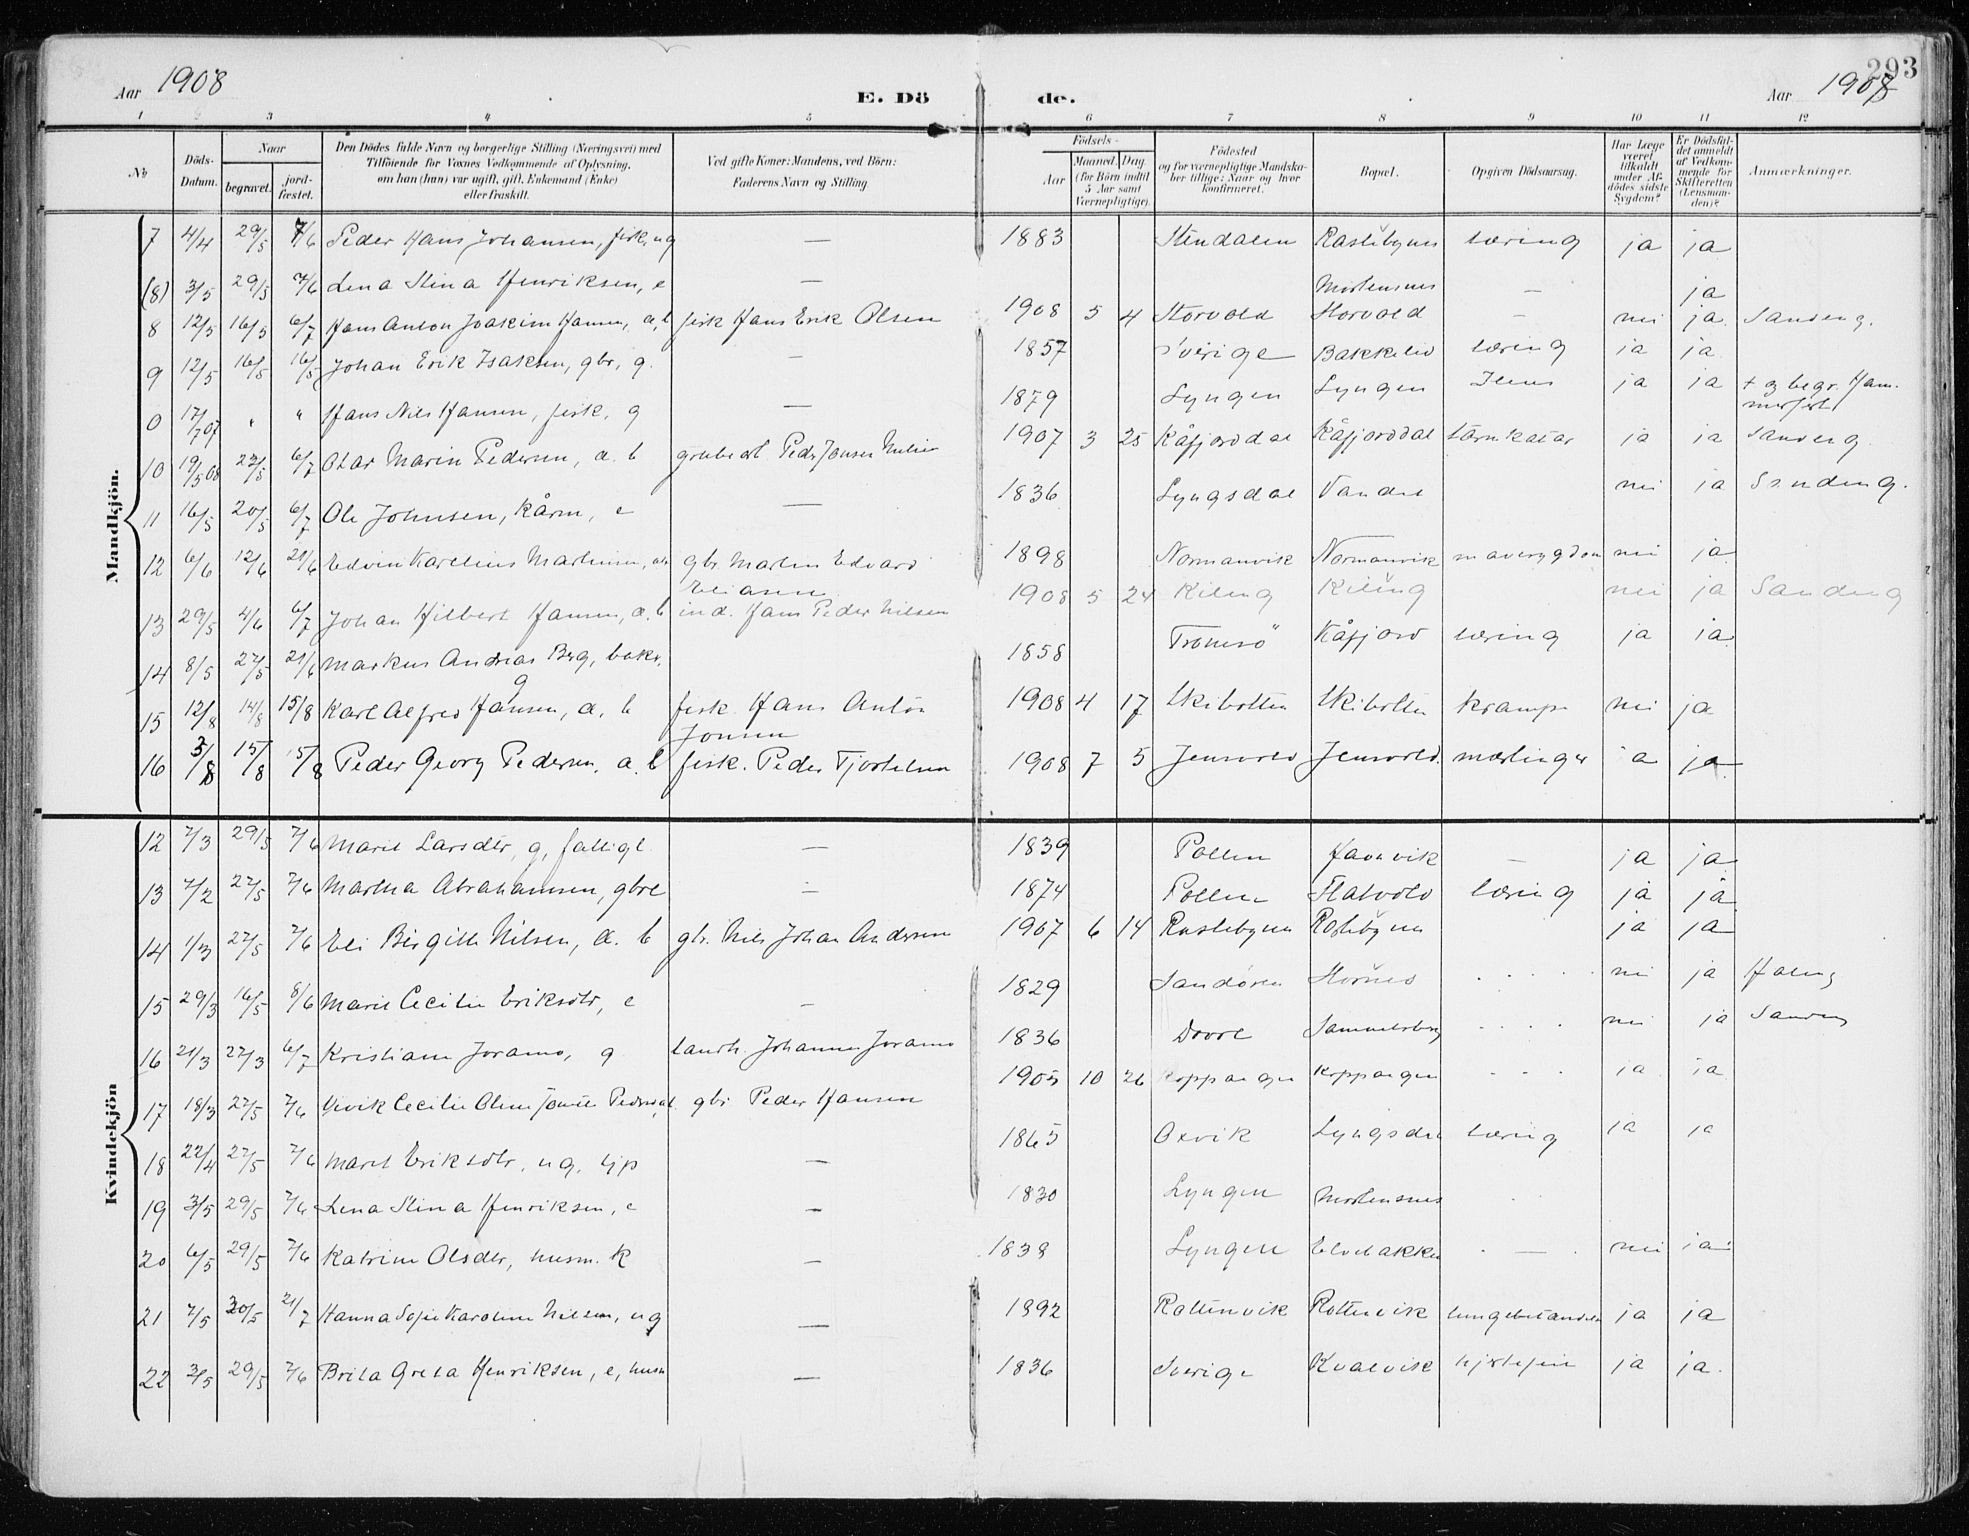 293
Aar 1908
E. Dö de.
Aar 1908
1 2 3 4 5 6 7 8 9 10 11 12
No
Döds-Datum.
Naar
begravet.
jord-fæstet.
Den Dödes fulde Navn og borgerlige Stilling (Næringsvei) med
Tilföiende for Voxnes Vedkommende af Oplysning,
om han (hun) var ugift, gift, Enkemand (Enke)
eller fraskilt.
Ved gifte Koner: Mandens, ved Börn:
Faderens Navn og Stilling.
Födsels-
Aar
Maaned. Dag.
(for Börn indtil
5 Aar samt
Værnepligtige).
Födested
og for værnepligtige Mandska-
ber tillige: Naar og hvor
konfirmeret.
Bopæl.
Opgiven Dödsaarsag.
Har Læge
været
tilkaldt
under Af-
dödes sidste
Sygdom?
Er Dödsfal-
det anmeldt
af Vedkom-
mende for
Skifteretten
(Lensman-
den)?
Anmærkninger.
Mandkjön.
7 4/4 29/5 7/6 Peder Hans Johansen, fisk, ug — 1883 Stendalen Rastebynes tæring ja ja
(8) 3/5 29/5 7/6 Lena Stina Henriksen, e — Mortensnes — ja
8 12/5 16/5 6/7 Hans Anton Joakim Hansen, a, b fisk Hans Erik Olsen 1908 5 4 Storvold Storvold — nei ja Sandeng.
9 12/5 16/5 16/5 Johan Erik Isaksen, gbr, g. — 1857 Sverige Bakkelid tæring ja ja
0 17/7 07 " " Hans Nils Hansen, fisk, g — 1879 Lyngen Lyngen Ileus ja ja + og begr. Ham-
merfest
10 19/5 08 22/5 6/7 Olar Marin Pedersen, a. b grubearb Peder Jonsen Nilsen 1907 3 25 Kåfjorddal Kåfjorddal tarmkatar ja ja Sandeng
11 16/5 20/5 6/7 Ole Johnsen, kårm, e — 1836 Lyngsdal Vandet nei ja Sandeng.
12 6/6 12/6 21/6 Edvin Karelius Martinsen, gbr Martin Edvard
Eliasen 1898 Normanvik Normanvik mavesygdom nei ja
13 29/5 4/6 6/7 Johan Hilbert Hansen, a. b ind. Hans Peder Nilsen 1908 5 24 Kileng Kileng nei ja Sandeng
14 8/5 27/5 21/6 Markus Andreas Berg, baker,
g 1858 Tromsö Kåfjord tæring ja ja
15 12/8 14/8 15/8 Karl Alfred Hansen, a, b fisk. Hans Anton
Jonsen 1908 4 17 Skibotten Skibotten krampe nei ja
16 3/8 15/8 15/8 Peder Georg Pedersen, a. b fisk. Peder 1908 7 5 Jensvold Jensvold mæslinger ja ja
Kvindekjön
12 7/3 29/5 7/6 Marie Larsdtr, g, fattigl. — 1839 Pollen Havnvik — ja ja
13 7/2 27/5 7/6 Martha Abrahamsen, gbre — 1874 Pollen Flatvold tæring ja ja
14 1/3 27/5 7/6 Eli Birgitte Nilsen, a. b gbr. Nils Johan Andersen 1907 6 14 Rastebynes Rastebynes ja ja
15 29/3 16/5 8/6 Marie Cecilie Eriksdtr, e — 1829 Sandören Hornes nei ja
16 21/3 27/3 6/7 Kristiane Joramo, g landh. Johannes Joramo 1836 Dovre Sammelsberg nei ja Sandeng
17 18/3 27/5 7/6 Cecilie Oline gbr Peder Hansen 1905 10 26 Koppangen Koppangen ja ja
18 22/4 27/5 7/6 Marit Eriksdtr, ug, tjp — 1865 Oxvik Lyngsdal tæring ja ja
19 3/5 29/5 7/6 Lena Stina Henriksen, e — 1830 Lyngen Mortensnes
20 6/5 29/5 7/6 Katrine Olsdtr, husm. k — 1838 Lyngen Elvebakken — nei ja
21 7/5 30/5 21/7 Hanna Sofie Karoline Nilsen, ug — 1892 Rottenvik Rottenvik lungebetændelse ja ja
22 2/5 29/5 7/6 Brita Greta Henriksen, e, husm — 1836 Sverige Kvalvik hjertefeil ja ja.